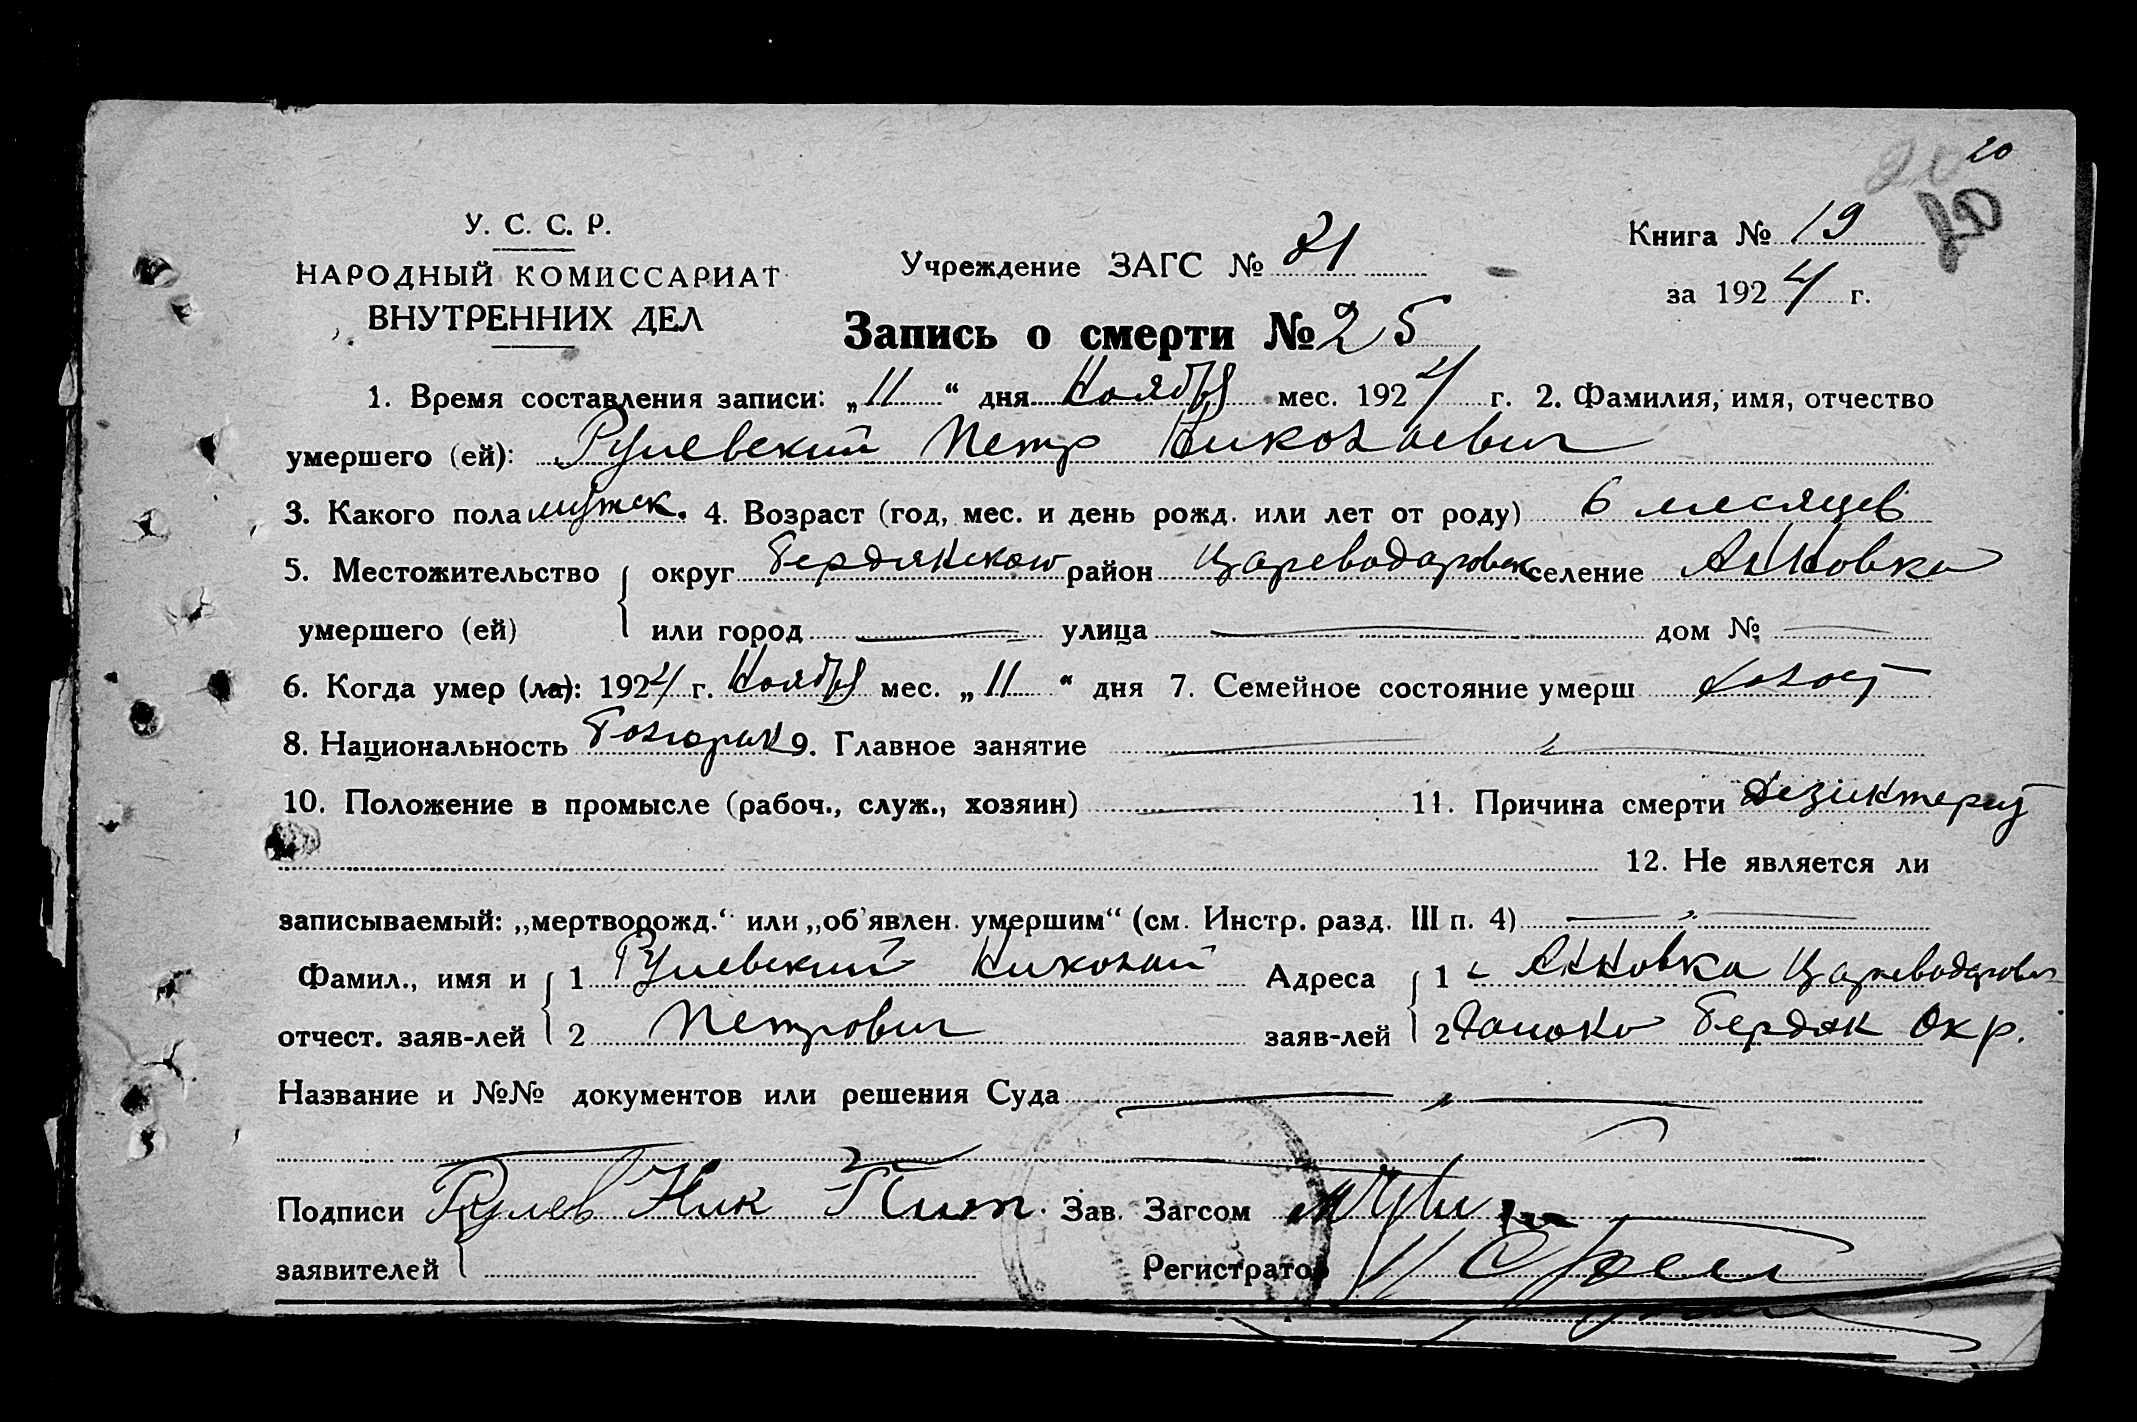 20
20
20
У. С. С. Р.
НАРОДНЫЙ КОМИССАРИАТ
ВНУТРЕННИХ ДЕЛ
Учреждение ЗАГС № 21
Книга № 19
за 1924 г.
Запись о смерти № 25
1. Время составления записи: „11“ дня Ноября мес. 1924 г. 2. Фамилия, имя, отчество
умершего (ей): Рулевский Петр Николаевич
3. Какого пола мужск. 4. Возраст (год, мес. и день рожд. или лет от роду) 6 месяцев
5. Местожительство округ Бердянском район Цареводаровск селение Анновка
умершего (ей) или город — улица — дом № —
6. Когда умер (ла): 1924 г. Ноября мес. „11“ дня 7. Семейное состояние умерш холост
8. Национальность Болгарин 9. Главное занятие —
10. Положение в промысле (рабоч., служ., хозяин) — 11. Причина смерти
12. Не является ли
записываемый: „мертворожд.“ или „об'явлен. умершим“ (см. Инстр. разд. III п. 4) —
Фамил., имя и 1 Рулевский Николай Адреса 1 с Анновка Цареводаровск
отчест. заяв-лей 2 Петрович заяв-лей 2 Бердяк Окр.
Название и №№ документов или решения Суда —
Подписи Рулев Ник Пит. Зав. Загсом
заявителей Регистратор